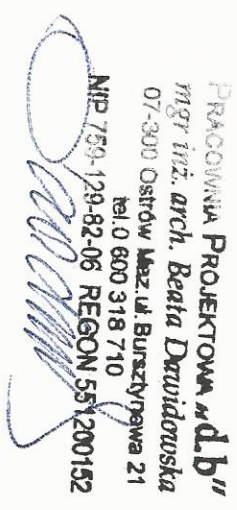 PRACOWNIA PROJEKTOWA „d.b”
mgr inż. arch. Beata Dawidowska
07-300 Ostrów Maz. ul. Bursztynowa 21
tel. 0 600 318 710
NIP 759-129-82-06 REGON 551200152